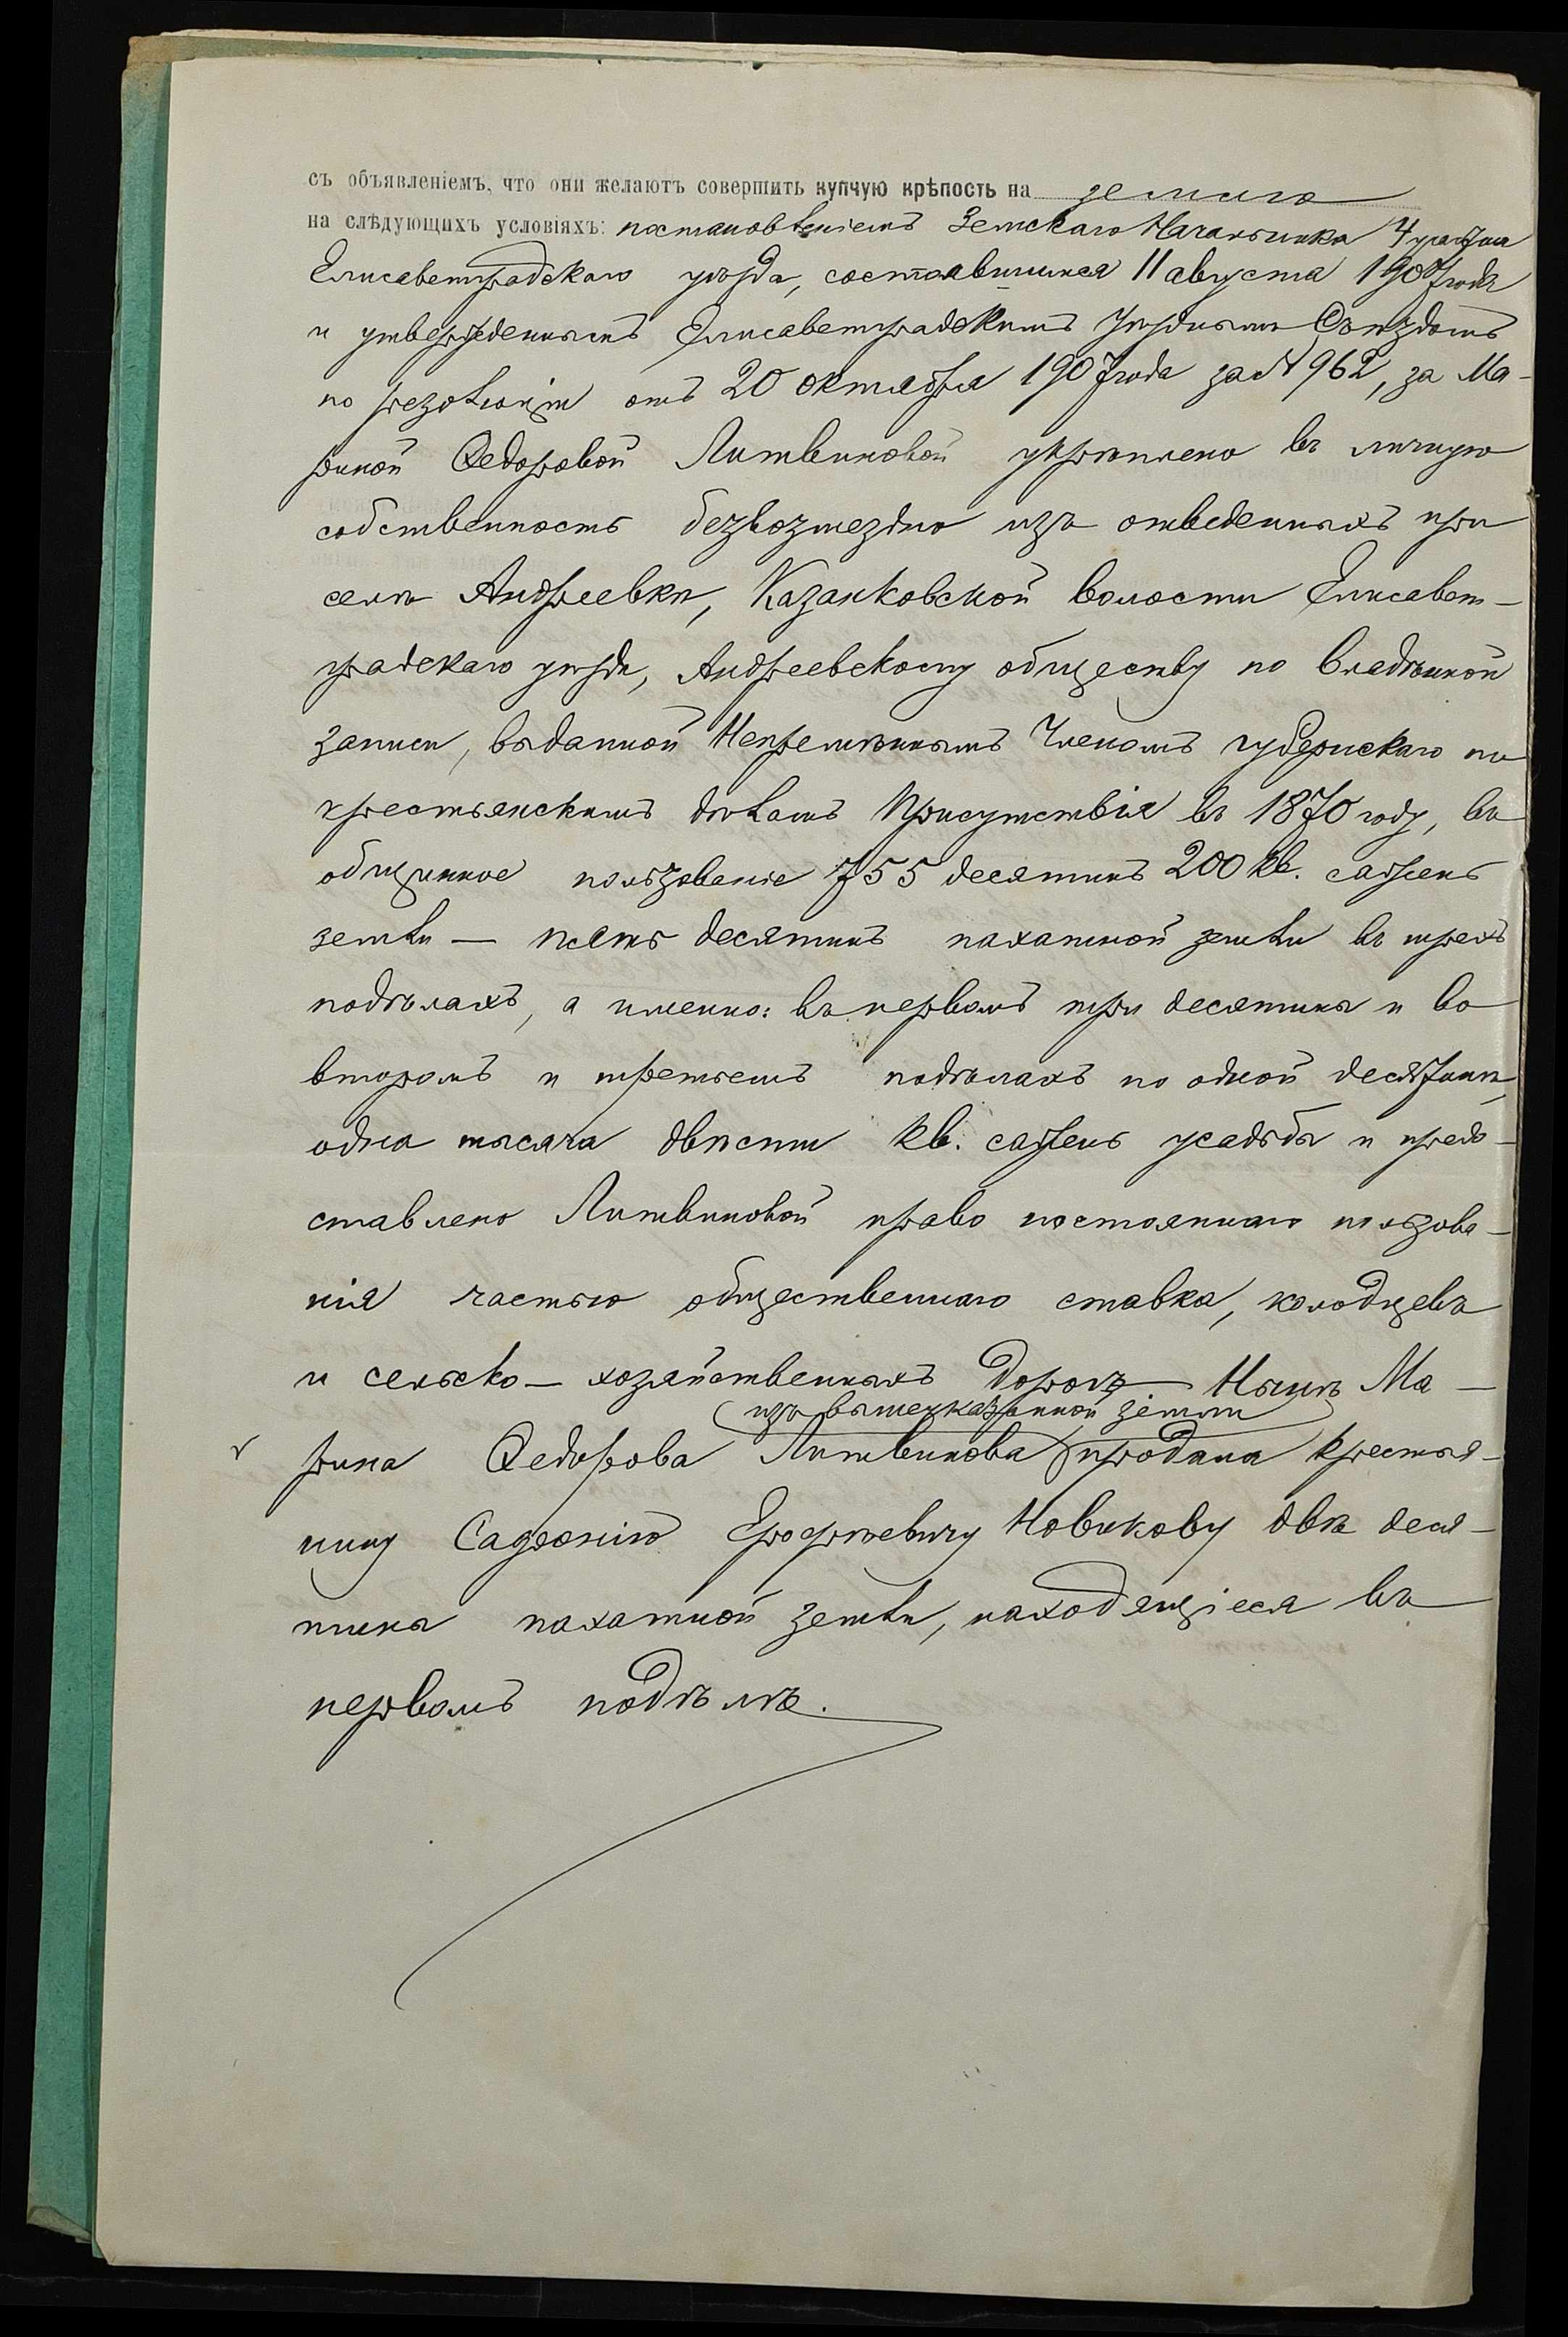 съ объявленіемъ, что они желаютъ совершить купчую крѣпость на землю
на слѣдующихъ условіяхъ: постановленіемъ Земскаго Начальника 4 участка
Елисаветградскаго уѣзда, состоявшимся 11 августа 1907 года
и утвержденнымъ Елисаветградскимъ Уѣзднымъ Съѣздомъ
по резолюціи отъ 20 октября 1907 года за № 962, за Ма-
риной Ѳедоровой Литвиновой укрѣплено въ личную
собственность безвозмездно изъ отведенныхъ при
селѣ Андреевкѣ, Казанковской волости Елисавет-
градскаго уѣзда, Андреевскому обществу по владѣнной
записи, выданной Непремѣннымъ Членомъ губернскаго по
крестьянскимъ дѣламъ Присутствія въ 1870 году, въ
общинное пользованіе 755 десятинъ 200 кв. сажень
земли — пять десятинъ пахатной земли въ трехъ
подѣлахъ, а именно: въ первомъ три десятины и во
второмъ и третьемъ подѣлахъ по одной десятинѣ,
одна тысяча двѣсти кв. сажень усадьбы и предо-
ставлено Литвиновой право постояннаго пользова-
нія частью общественнаго ставка, колодцевъ
и сельско-хозяйственныхъ дорогъ. Нынѣ Ма-
изъ вышеуказанной земли
рина Ѳедорова Литвинова продала крестья-
нину Ерофѣевичу Новикову двѣ деся-
тины пахатной земли, находящіеся въ
первомъ подѣлѣ.